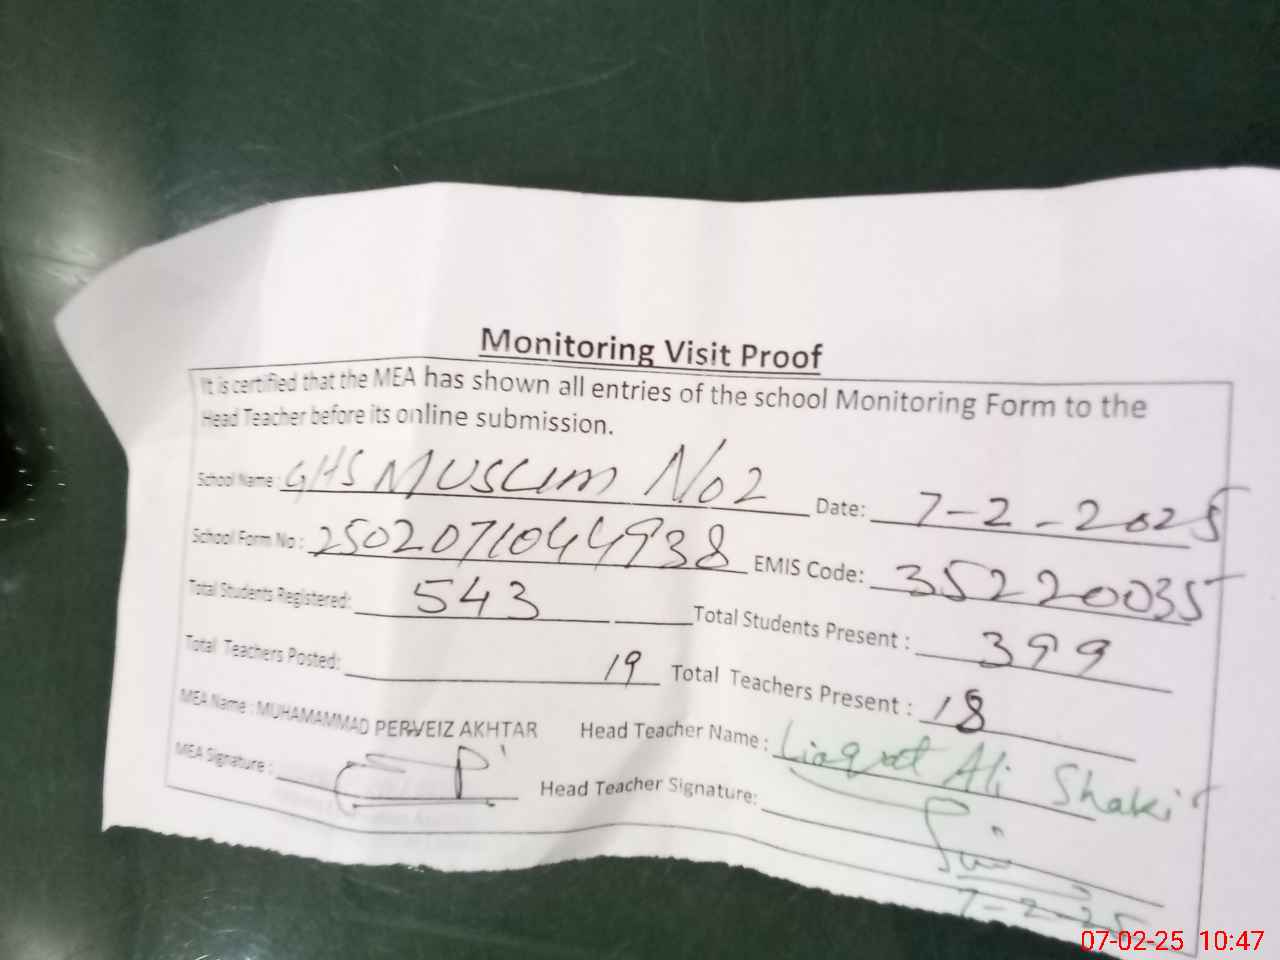 Monitoring Visit Proof
It is certified that the MEA has shown all entries of the school Monitoring Form to the
Head Teacher before its online submission.
School Name: GHS MUSLIM No 2 Date: 7-2-2025
School Form No: 2502071044938 EMIS Code: 35220035
Total Students Registered: 543 Total Students Present: 399
Total Teachers Posted: 19 Total Teachers Present: 18
MEA Name: MUHAMAMMAD PERVEIZ AKHTAR Head Teacher Name: Liaqat Ali Shakir
MEA Signature: Head Teacher Signature:
7-2-25
07-02-25 10:47